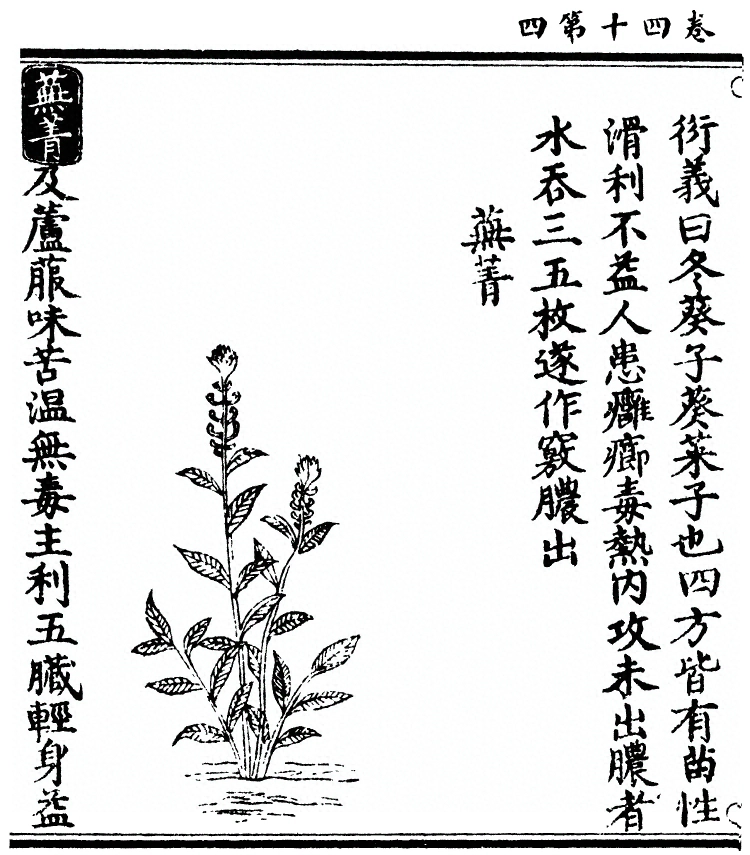 卷四十第四
衍義曰冬葵子葵菜子也四方皆有苗性
滑利不益人患癰癤毒熱内攻未出膿者
水吞三五枚遂作竅膿出
蕪菁
蕪菁及蘆菔味苦温無毒主利五臟輕身益